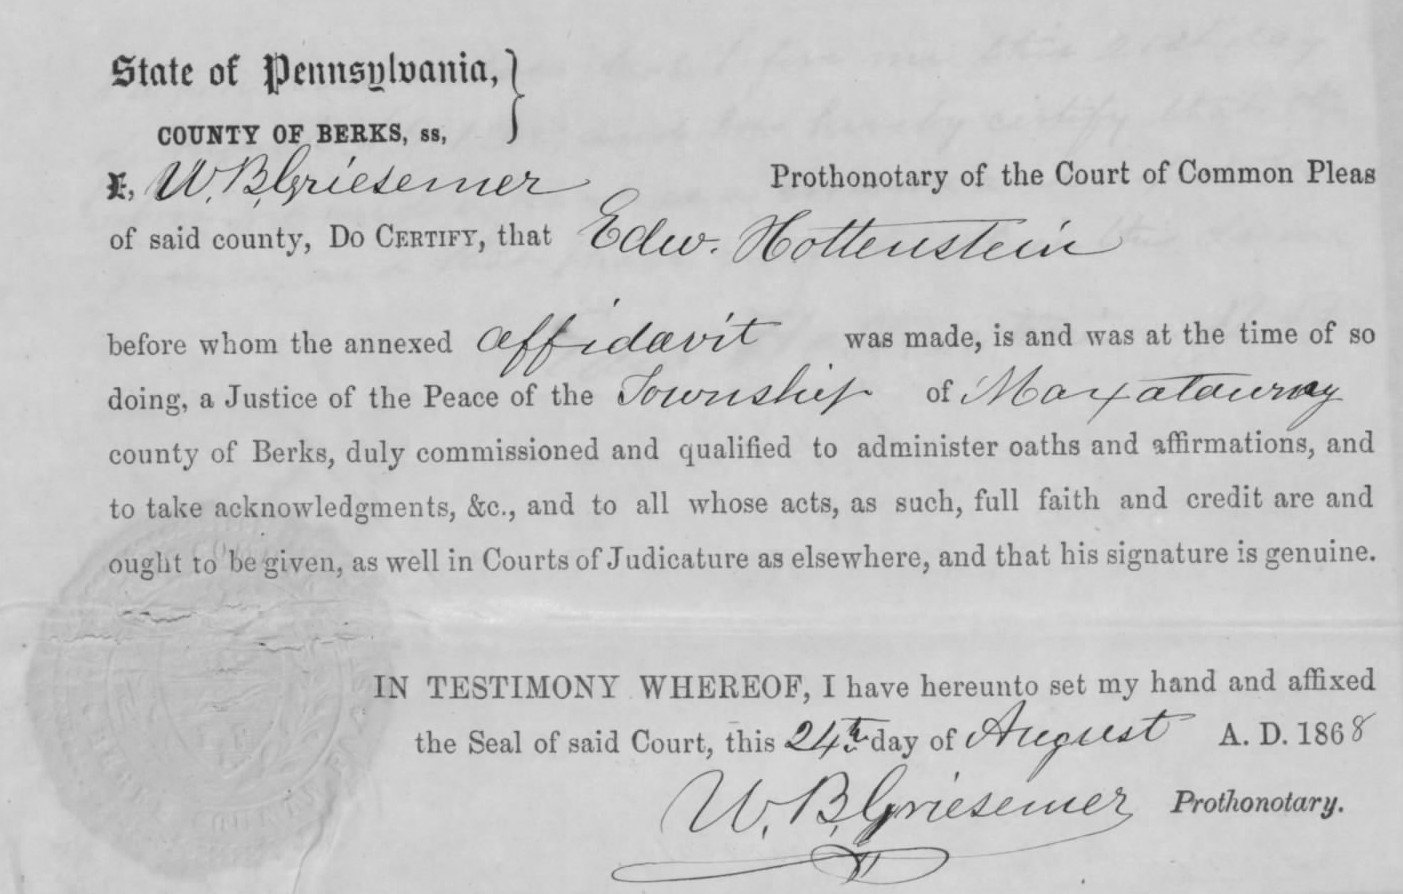 State of Pennsylvania,
COUNTY OF BERKS, ss,
I, W. B. Griesemer Prothonotary of the Court of Common Pleas
of said county, Do Certify, that Edw. Hottenstein
before whom the annexed affidavit was made, is and was at the time of so
doing, a Justice of the Peace of the Township of Maxatawny
county of Berks, duly commissioned and qualified to administer oaths and affirmations, and
to take acknowledgments, &c., and to all whose acts, as such, full faith and credit are and
ought to be given, as well in Courts of Judicature as elsewhere, and that his signature is genuine.
IN TESTIMONY WHEREOF, I have hereunto set my hand and affixed
the Seal of said Court, this 24th day of August A. D. 1868
W. B. Griesemer Prothonotary.